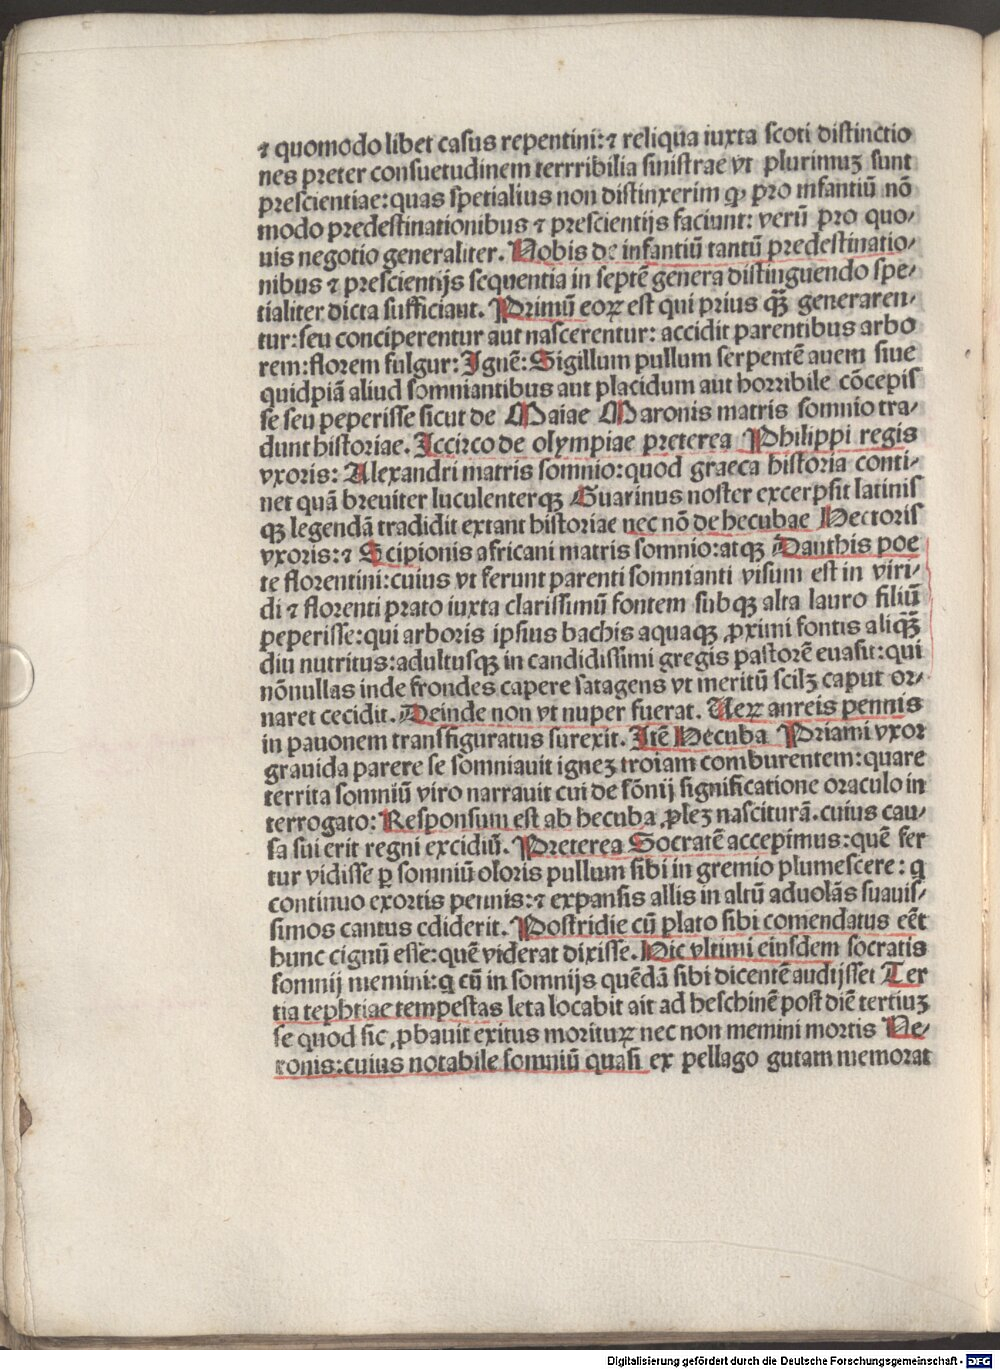 ⁊ quomodo libet casus repentini:⁊ reliqua iuxta scoti distinctio
nes preter consuetudinem terrribilia sinistrae vt plurimuꝫ sunt
prescientiae:quas spetialius non distinxerim ꝙ pro infantiū nō
modo predestinationibus ⁊ prescientijs faciunt: verū pro quo-
uis negotio generaliter. Nobis de infantiū tantū predestinatio-
nibus ⁊ prescientijs sequentia in septē genera distinguendo spe-
tialiter dicta sufficiant. Primū eoꝝ est qui prius qꝫ̄ generaren-
tur:seu conciperentur aut nascerentur: accidit parentibus arbo
rem:florem fulgur: Ignē: Sigillum pullum serpentē auem siue
quidpiā aliud somniantibus aut placidum aut horribile cōcepis
se seu peperisse sicut de Maiae Maronis matris somnio tra-
dunt historiae. Iccirco de olympiae preterea Philippi regis
vxoris: Alexandri matris somnio:quod graeca historia conti-
net quā breuiter luculenterqꝫ Guarinus noster excerpsit latinis
qꝫ legendā tradidit extant historiae nec nō de hecubae Hectoris
vxoris:⁊ Scipionis africani matris somnio:atqꝫ Danthis poe
te florentini:cuius vt ferunt parenti somnianti visum est in viri-
di ⁊ florenti prato iuxta clarissimū fontem subqꝫ alta lauro filiū
peperisse:qui arboris ipsius bachis aquaqꝫ ꝓximi fontis aliqꝫ̄
diu nutritus:adultusqꝫ in candidissimi gregis pastorē euasit:qui
nōnullas inde frondes capere satagens vt meritū scilꝫ caput or-
naret cecidit. Deinde non vt nuper fuerat. Ueꝝ anreis pennis
in pauonem transfiguratus surexit. Itē Hecuba Priami vxor
grauida parere se somniauit igneꝫ troiam comburentem:quare
territa somniū viro narrauit cui de fōnij significatione oraculo in
terrogato: Responsum est ab hecuba ꝓleꝫ nasciturā.cuius cau-
sa sui erit regni excidiū. Preterea Socratē accepimus:quē fer
tur vidisse ꝑ somniū oloris pullum sibi in gremio plumescere: q
continuo exortis pennis:⁊ expansis allis in altū aduolās suauis-
simos cantus cdiderit. Postridie cū plato sibi comendatus eēt
hunc cignū esse:quē viderat dixisse. Hic vltimi eiusdem socratis
somnij memini:q cū in somnijs quēdā sibi dicentē audijssei Ter
tia tephtiae tempestas leta locabit ait ad heschinē post diē tertiuꝫ
se quod sic ꝓbauit exitus morituꝝ nec non memini mortis Ne-
ronis:cuius notabile somniū quasi ex pellago gutam memorat
Digitalisierung gefördert durch die Deutsche Forschungsgemeinschaft - DFG